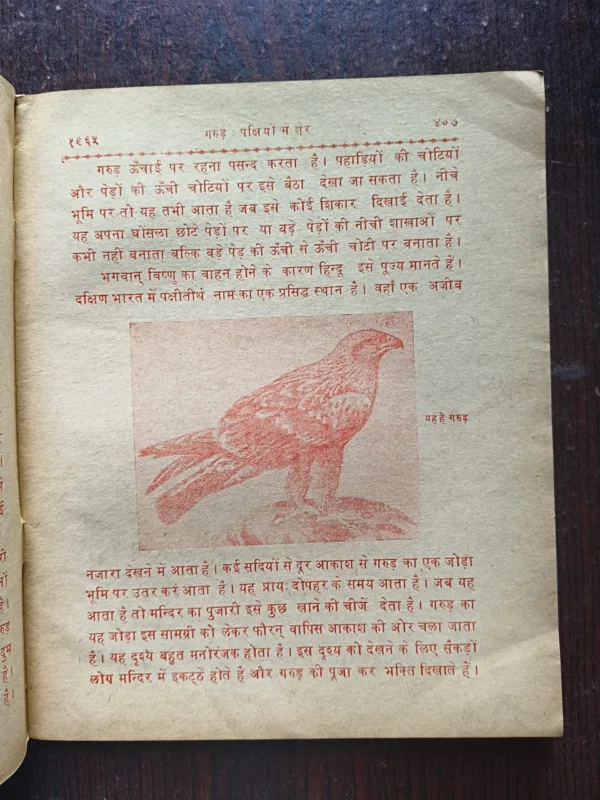 १९६५ गरुड़ : पक्षियों में शेर ४०७
गरुड़ ऊँचाई पर रहना पसन्द करता है। पहाड़ियों की चोटियों
और पेड़ों की ऊँची चोटियों पर इसे बैठा देखा जा सकता है। नीचे
भूमि पर तो यह तभी आता है जब इसे कोई शिकार दिखाई देता है।
यह अपना घोंसला छोटे पेड़ों पर या बड़े पेड़ों की नीची शाखाओं पर
कभी नहीं बनाता बल्कि बड़े पेड़ की ऊँची से ऊँची चोटी पर बनाता है।
भगवान् विष्णु का वाहन होने के कारण हिन्दू इसे पूज्य मानते हैं।
दक्षिण भारत में पक्षीतीर्थ नाम का एक प्रसिद्ध स्थान है। वहाँ एक अजीब
यह है गरुड़
नजारा देखने में आता है। कई सदियों से दूर आकाश से गरुड़ का एक जोड़ा
भूमि पर उतर कर आता है। यह प्रायः दोपहर के समय आता है। जब यह
आता है तो मन्दिर का पुजारी इसे कुछ खाने की चीजें देता है। गरुड़ का
यह जोड़ा इस सामग्री को लेकर फौरन् वापिस आकाश की ओर चला जाता
है। यह दृश्य बहुत मनोरंजक होता है। इस दृश्य को देखने के लिए सैंकड़ों
लोग मन्दिर में इकट्ठे होते हैं और गरुड़ की पूजा कर भक्ति दिखाते हैं।